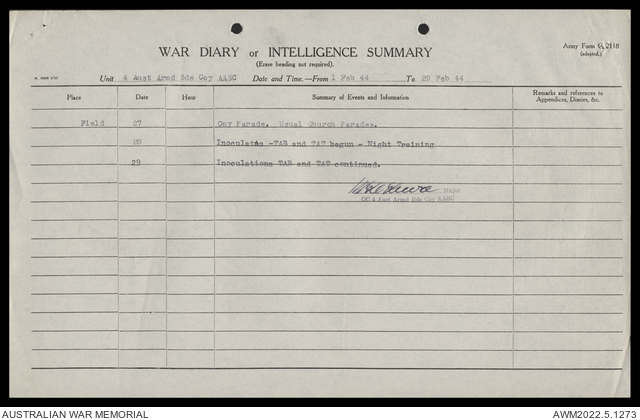 WAR DIARY or INTELLIGENCE SUMMARY
(Erase heading not required).
Army Form C. 2118
(adapted.)
Unit 4 Aust Armd Bde Coy AASC Date and Time.—From 1 Feb 44 To 29 Feb 44
Place Date Hour Summary of Events and Information Remarks and references to Appendices, Diaries, &c.
Field 27 Coy Parade. Usual Church Parades.
28 Inoculatns -TAB and TAT begun - Night Training
29 Inoculations TAB and TAT continued.
Major
OC 4 Aust Armd Bde Coy AASC
AUSTRALIAN WAR MEMORIAL AWM2022.5.1273